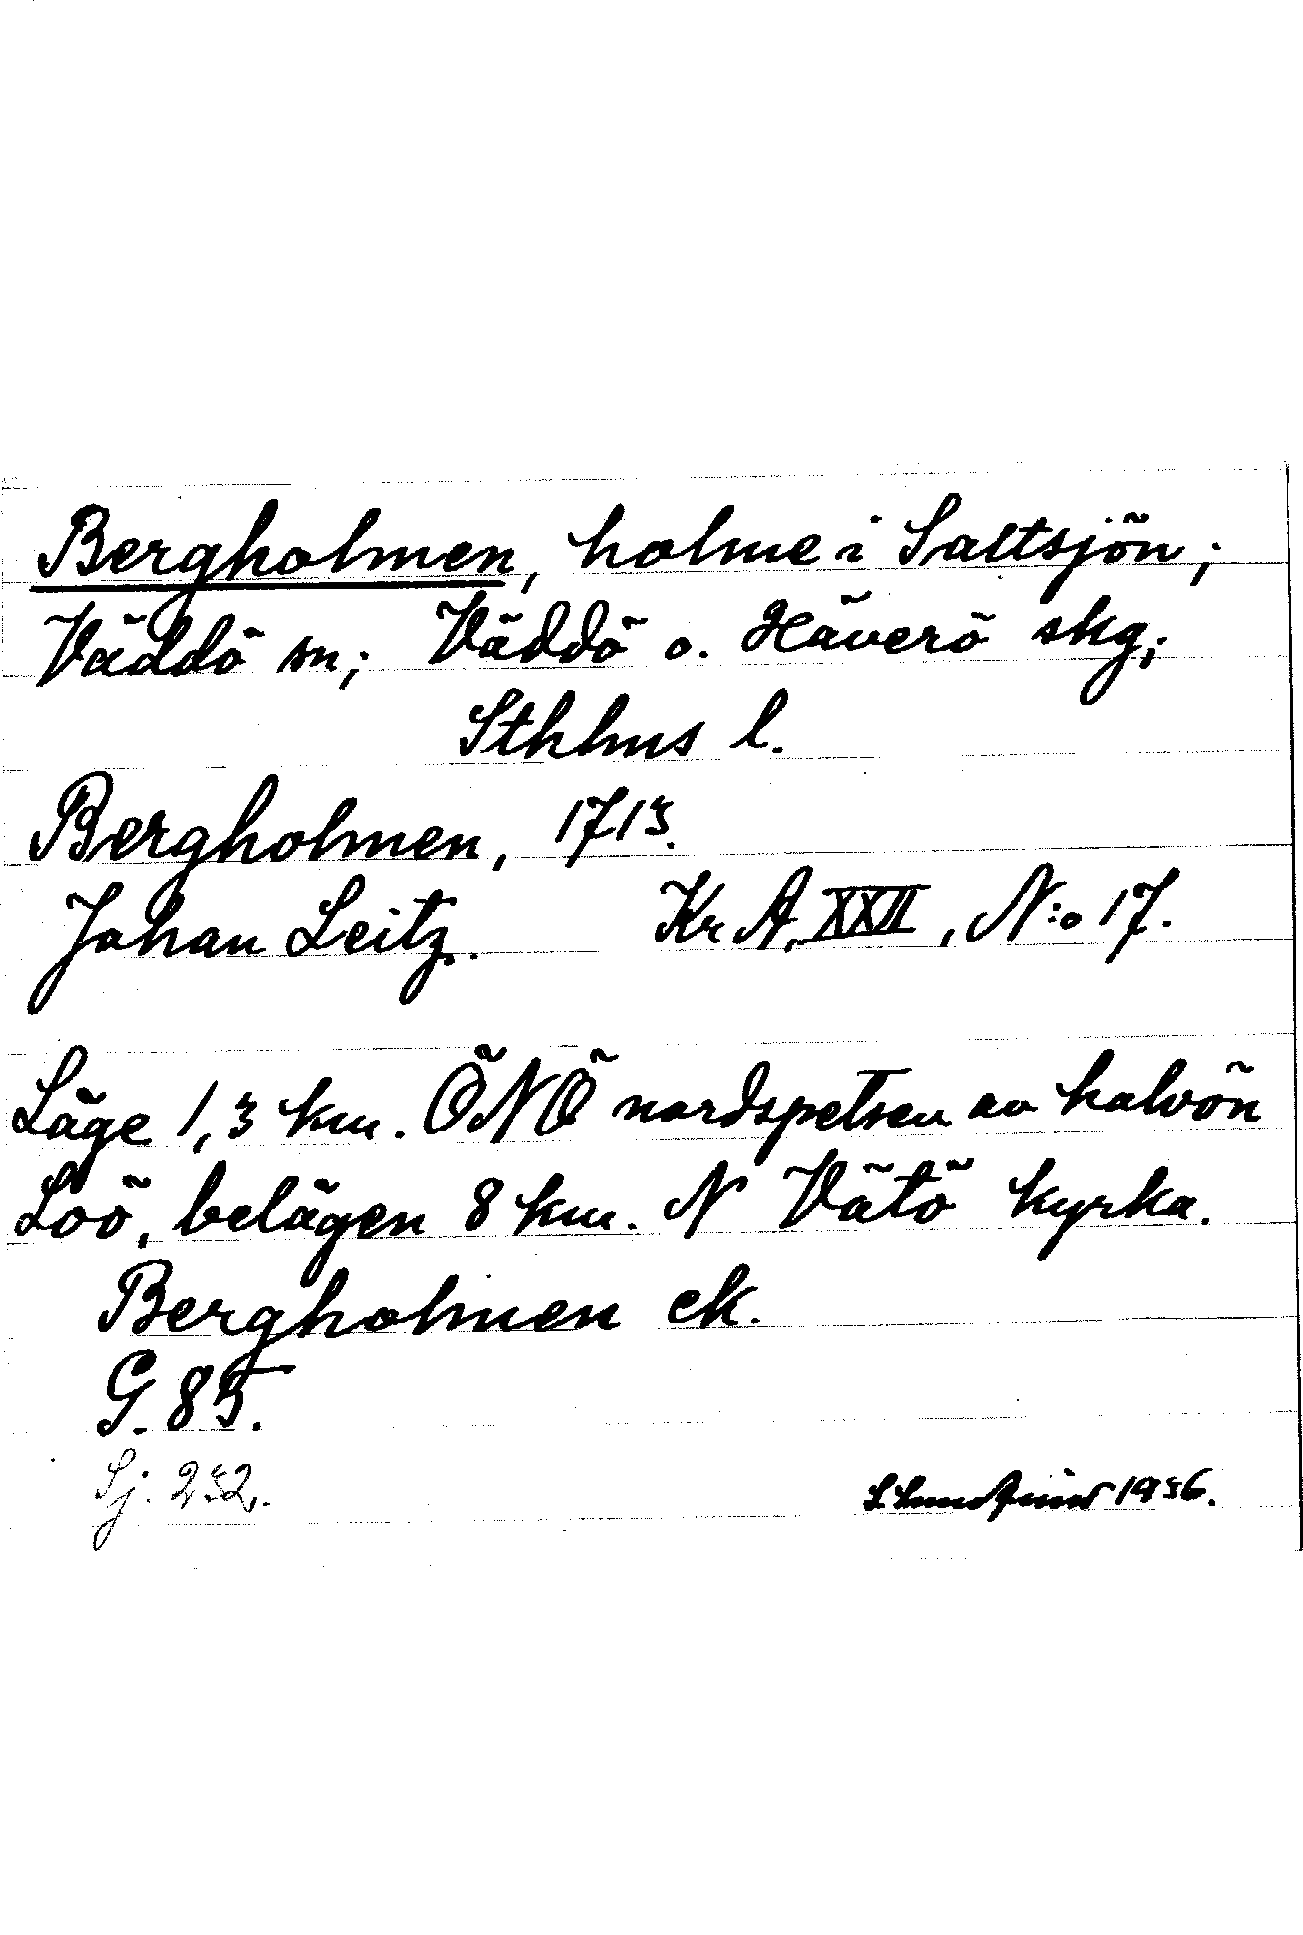 Bergholmen, holme i Saltsjön;
Väddö sn; Väddö o. Häverö skg;
Sthlms l.
Bergholmen, 1713.
Johan Leitz. Kr A, XXII, N:o 17.
Läge 1,3 km. ÖNÖ nordspetsen av halvön
Loö, belägen 8 km. N Vätö kyrka.
Bergholmen ek.
G. 85.
Sj. 232.
1936.